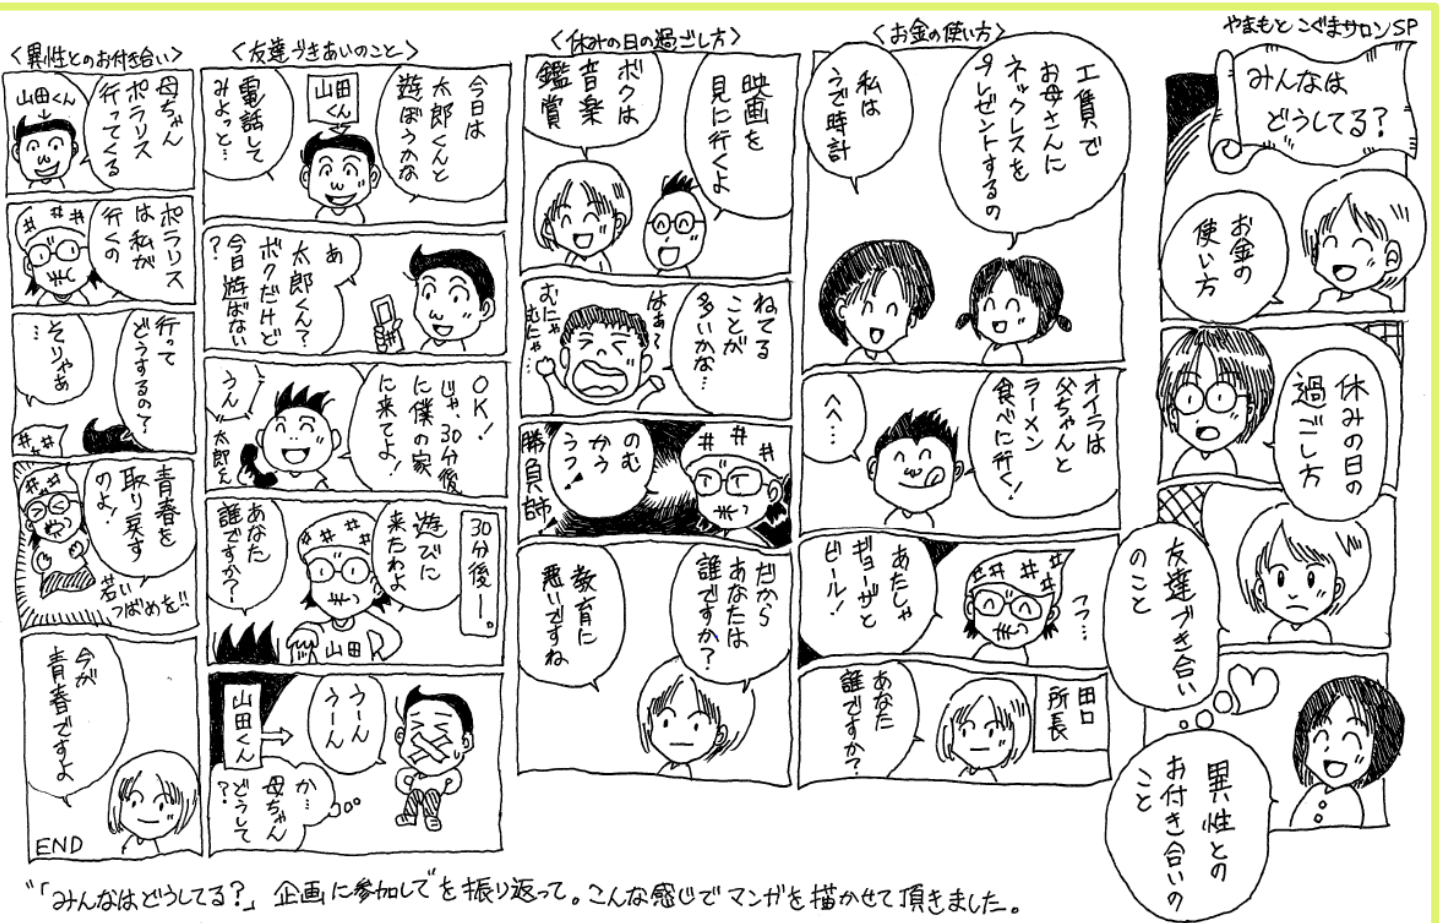 やまもと こぐまサロンSP
みんなは
どうしてる?
お金の
使い方
休みの日の
過ごし方
友達づき合い
のこと
異性との
お付き合いの
こと
<お金の使い方>
工賃で
お母さんに
ネックレスを
プレゼントするの
私は
うで時計
オイラは
父ちゃんと
ラーメン
食べに行く!
へへ…
フフ…
あたしゃ
ギョーザと
ビール!
田口
所長
あなた
誰ですか?
<休みの日の過ごし方>
映画を
見に行くよ
ボクは
音楽
鑑賞
ねてる
ことが
多いかな…
はぁ〜
むにゃ
むにゃ…
のむ
かう
うつ!
勝負師
だから
あなたは
誰ですか?
教育に
悪いですね
<友達づきあいのこと>
今日は
太郎くんと
遊ぼうかな
山田
くん
電話して
みよっと…
あ
太郎くん?
ボクだけど
今日遊ばない
?
OK!
じゃ、30分後
に僕の家
に来てよ!
うん
太郎くん
30分後ー。
遊びに
来たわよ
あなた
誰ですか?
山田
山田くん
うーん
うーん
か…
母ちゃん
どうして
?
<異性とのお付き合い>
母ちゃん
ポラリス
行ってくる
山田くん
ポラリス
は私が
行くの
行って
どうするの?
そりゃあ
…
青春を
取り戻す
のよ!
若い
つばめを!!
今が
青春ですよ
END
"「みんなはどうしてる?」企画に参加してを振り返って。こんな感じでマンガを描かせて頂きました。